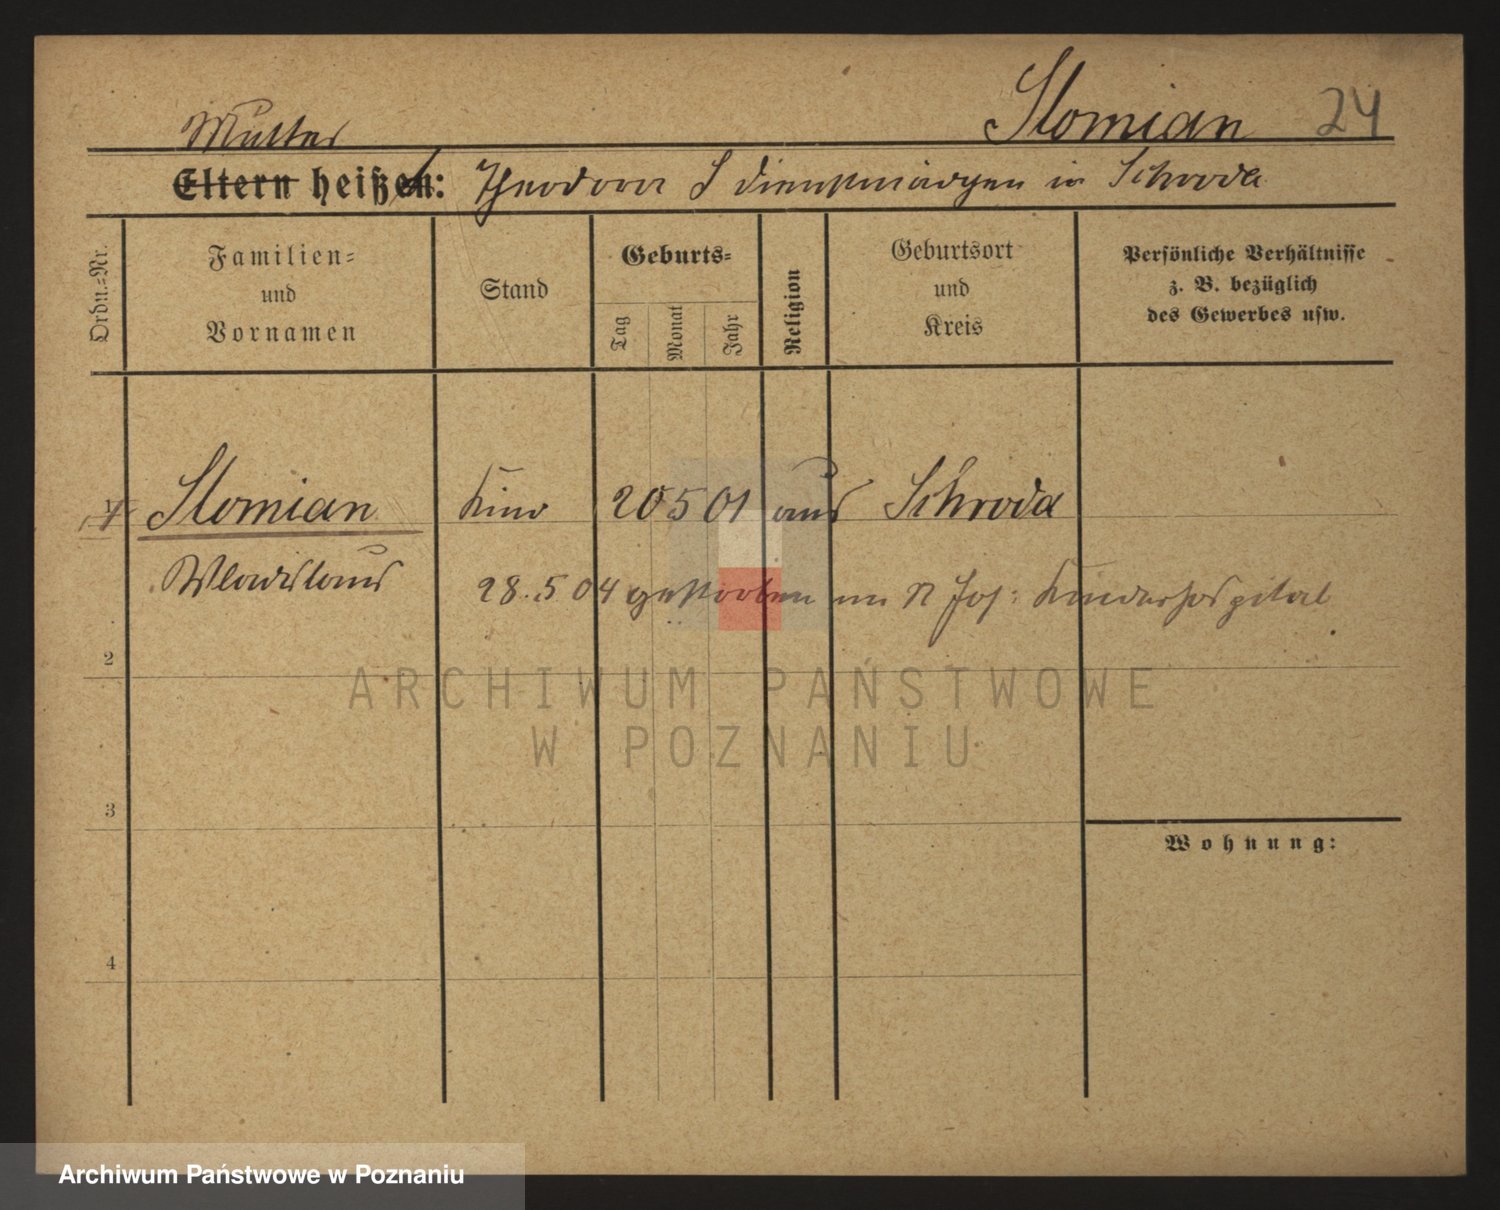 Slomian 24
Mutter
Eltern heißen: Theodora S Dienstmädchen in Schroda
Ordn.=Nr.
Familien=
und
Vornamen
Stand
Geburts=
Tag
Monat
Jahr
Religion
Geburtsort
und
Kreis
Persönliche Verhältnisse
z. B. bezüglich
des Gewerbes usw.
1 Slomian Kind 20 5 01 aus Schroda
Wladislaus
28.5 04 gestorben im Jos: Kinderhospital
2
ARCHIWUM PAŃSTWOWE
W POZNANIU
3
Wohnung:
4
Archiwum Państwowe w Poznaniu